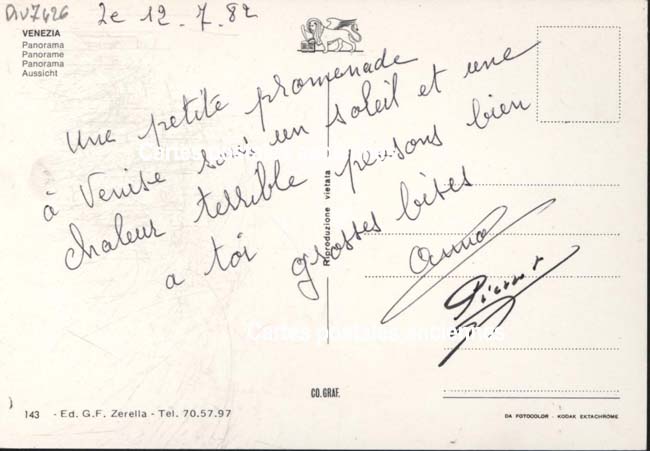 AV7426
Le 12.7.82
VENEZIA
Panorama
Panorame
Panorama
Aussicht
une petite promenade
à Venise sous un soleil et une
chaleur terrible pensons bien
a toi grosses bises
Anna
Pierrot
Riproduzione vietata
Cartes postales anciennes
Cartes postales anciennes
CO.GRAF.
143 - Ed. G.F. Zerella - Tel. 70.57.97
DA FOTOCOLOR - KODAK EKTACHROME